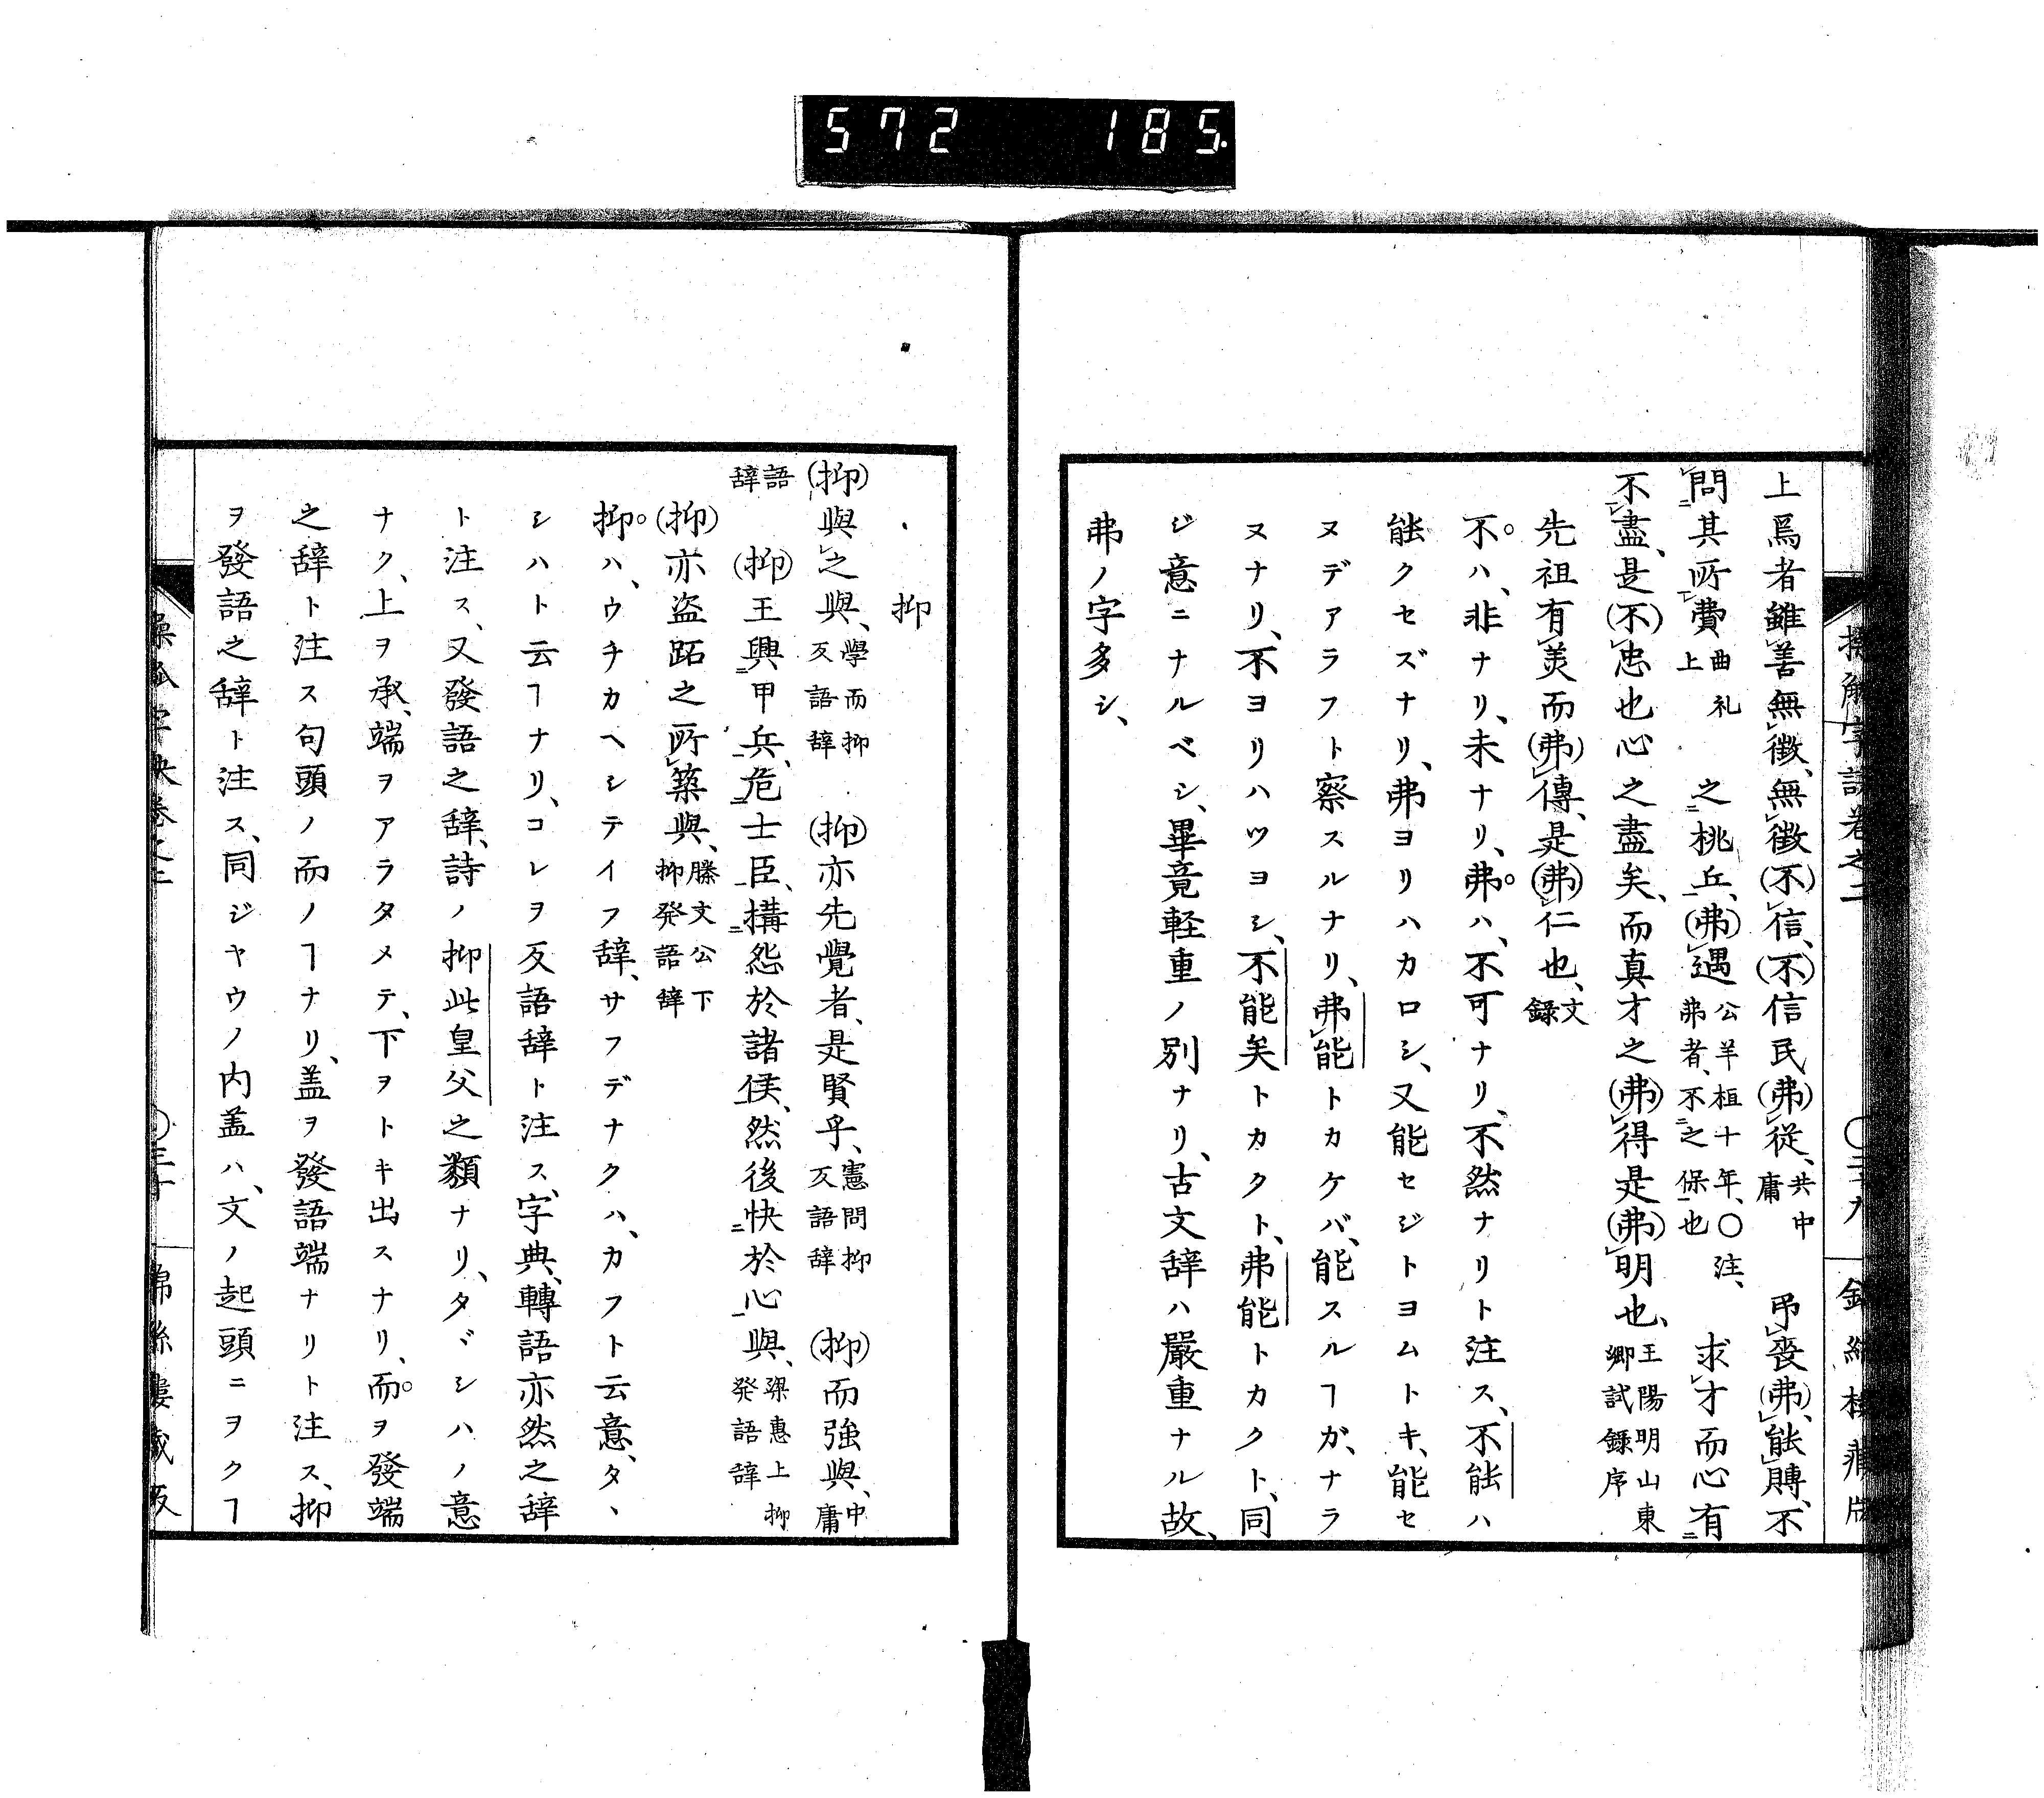 572 185.
上爲者雖善無徴、無徴(不)信、(不)信民(弗)従、共中庸 弔喪(弗)、能賻、不
問其所費曲礼上 之桃丘、(弗)遇公羊桓十年、〇注、弗者、不之保也 求才而心有
不盡、是(不)忠也心之盡矣、而真才之(弗)得是(弗)明也、王陽明山東郷試録序
先祖有美而(弗)傳、是(弗)仁也、文録
不ハ、非ナリ、未ナリ、弗ハ、不可ナリ、不然ナリト注ス、不能ハ
能クセズナリ、弗ヨリハカロシ、又能セジトヨムトキ、能セ
ヌデアラフト察スルナリ、弗能トカケバ、能スルヿガ、ナラ
ヌナリ、不ヨリハツヨシ、不能矣トカクト、弗能トカクト、同
ジ意ニナルベシ、畢竟軽重ノ別ナリ、古文辞ハ嚴重ナル故、
弗ノ字多シ、
抑
(抑)與之與、學而抑反語辞 (抑)亦先覺者、是賢乎、憲問抑反語辞 (抑)而強與、中庸
語辞 (抑)王興甲兵、危士臣、構怨於諸侯、然後快於心與、梁惠上抑発語辞
(抑)亦盗跖之所築與、滕文公下抑発語辞
抑ハ、ウチカヘシテイフ辞、サフデナクハ、カフト云意、タヽ
シハト云ヿナリ、コレヲ反語辞ト注ス、字典、轉語亦然之辞
ト注ス、又發語之辞、詩ノ抑此皇父之類ナリ、タヾシハノ意
ナク、上ヲ承、端ヲアラタメテ、下ヲトキ出スナリ、而ヲ發端
之辞ト注ス句頭ノ而ノヿナリ、盖ヲ發語端ナリト注ス、抑
ヲ發語之辞ト注ス、同ジヤウノ内盖ハ、文ノ起頭ニヲクヿ